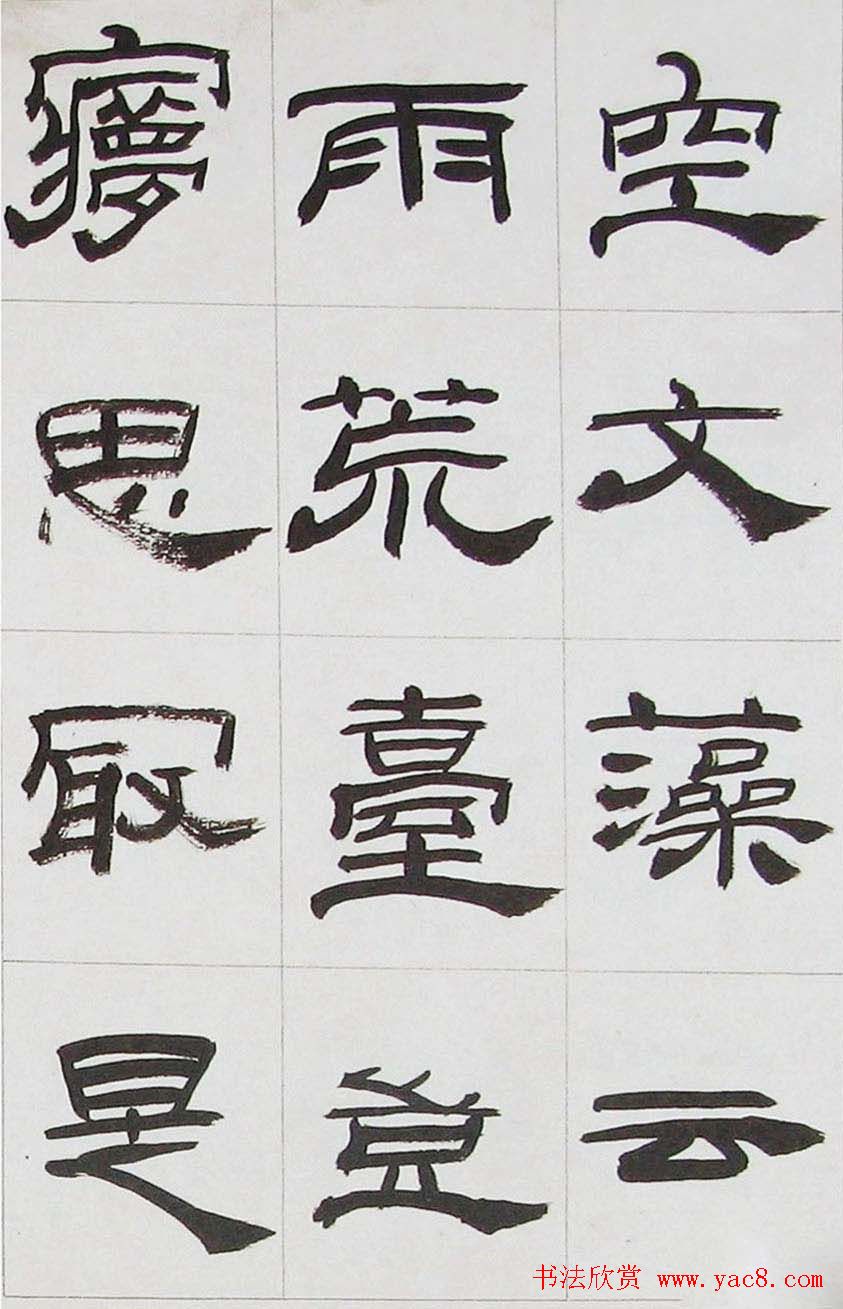 空文藻云
雨荒臺豈
㝱思冣是
书法欣赏 www.yac8.com